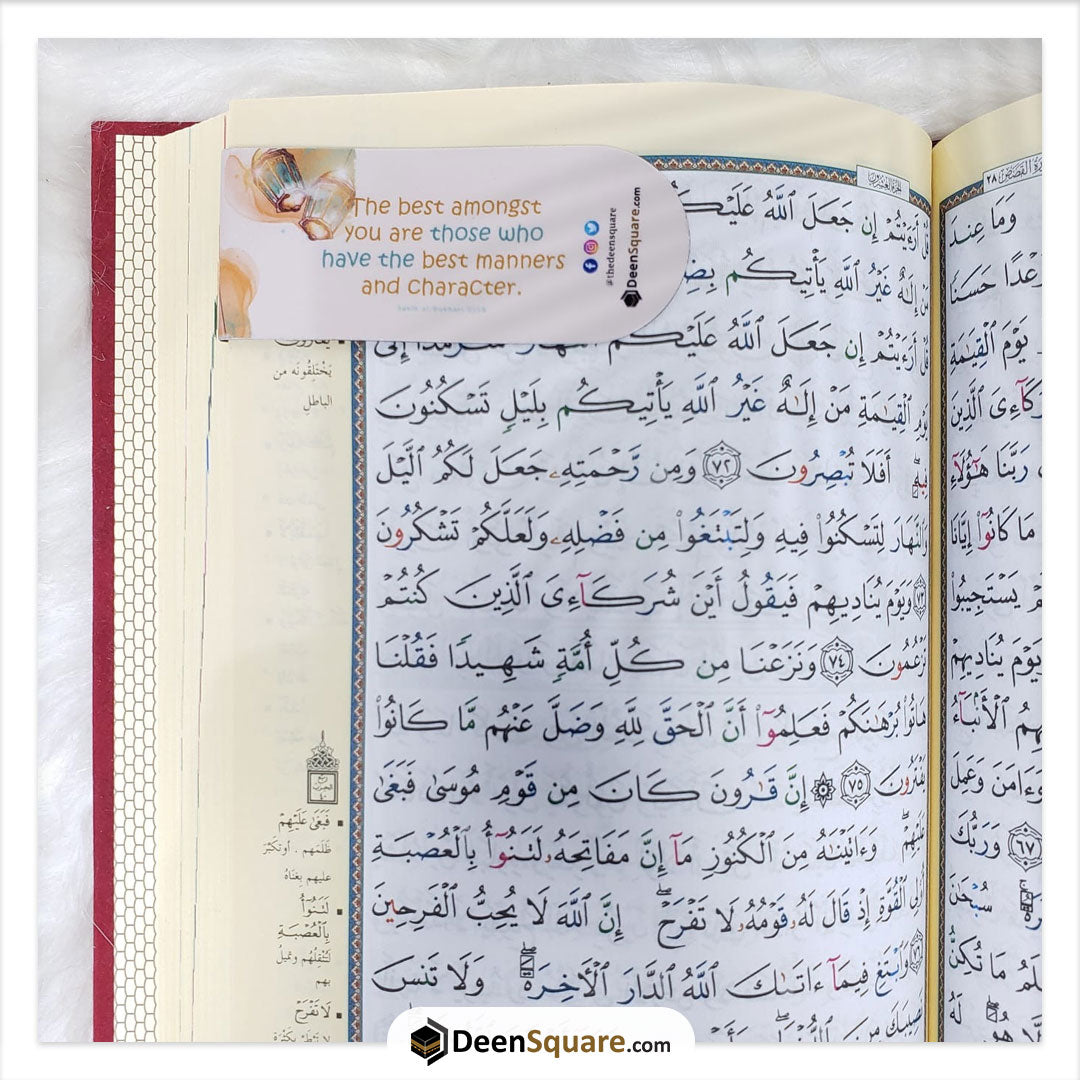 The best amongst
you are those who
have the best manners
and character.
@thedeensquare
DeenSquare.com
الجزء العشرون
قُلْ أَرَءَيْتُمْ إِن جَعَلَ ٱللَّهُ
مَنْ إِلَٰهٌ غَيْرُ ٱللَّهِ يَأْتِيكُم
قُلْ أَرَءَيْتُمْ إِن جَعَلَ ٱللَّهُ عَلَيْكُمُ ٱلنَّهَارَ سَرْمَدًا إِلَىٰ
يَوْمِ ٱلْقِيَٰمَةِ مَنْ إِلَٰهٌ غَيْرُ ٱللَّهِ يَأْتِيكُم بِلَيْلٍ تَسْكُنُونَ
فِيهِ ۖ أَفَلَا تُبْصِرُونَ ٧٢ وَمِن رَّحْمَتِهِۦ جَعَلَ لَكُمُ ٱلَّيْلَ
وَٱلنَّهَارَ لِتَسْكُنُوا۟ فِيهِ وَلِتَبْتَغُوا۟ مِن فَضْلِهِۦ وَلَعَلَّكُمْ تَشْكُرُونَ
٧٣ وَيَوْمَ يُنَادِيهِمْ فَيَقُولُ أَيْنَ شُرَكَآءِىَ ٱلَّذِينَ كُنتُمْ
تَزْعُمُونَ ٧٤ وَنَزَعْنَا مِن كُلِّ أُمَّةٍ شَهِيدًا فَقُلْنَا
هَاتُوا۟ بُرْهَٰنَكُمْ فَعَلِمُوٓا۟ أَنَّ ٱلْحَقَّ لِلَّهِ وَضَلَّ عَنْهُم مَّا كَانُوا۟
يَفْتَرُونَ ٧٥ ۞ إِنَّ قَٰرُونَ كَانَ مِن قَوْمِ مُوسَىٰ فَبَغَىٰ
عَلَيْهِمْ ۖ وَءَاتَيْنَٰهُ مِنَ ٱلْكُنُوزِ مَآ إِنَّ مَفَاتِحَهُۥ لَتَنُوٓأُ بِٱلْعُصْبَةِ
أُو۟لِى ٱلْقُوَّةِ إِذْ قَالَ لَهُۥ قَوْمُهُۥ لَا تَفْرَحْ ۖ إِنَّ ٱللَّهَ لَا يُحِبُّ ٱلْفَرِحِينَ
٧٦ وَٱبْتَغِ فِيمَآ ءَاتَىٰكَ ٱللَّهُ ٱلدَّارَ ٱلْءَاخِرَةَ ۖ وَلَا تَنسَ
نَصِيبَكَ مِنَ ٱلدُّنْيَا ۖ
يَخْتَلِقُونَه من
الباطلِ
ربع
الحزب
٤٠
فَبَغَىٰ عَلَيْهِمْ
ظَلَمَهم . أو تكَبَّرَ
عليهم بِغَناهُ
لَتَنُوٓأُ
بِٱلْعُصْبَةِ
لَتُثْقِلُهم وتميلُ
بهم
لَا تَفْرَحْ
سورة القصص ٢٨
وَمَا عِندَ
وَعْدًا حَسَنًا
يَوْمَ ٱلْقِيَٰمَةِ
شُرَكَآءِىَ ٱلَّذِينَ
رَبَّنَا هَٰٓؤُلَآءِ
مَا كَانُوٓا۟ إِيَّانَا
يَسْتَجِيبُوا۟
وَيَوْمَ يُنَادِيهِمْ
ٱلْأَنۢبَآءُ
وَءَامَنَ وَعَمِلَ
٦٧ وَرَبُّكَ
سُبْحَٰنَ
مَا تُكِنُّ
لَهُ
DeenSquare.com